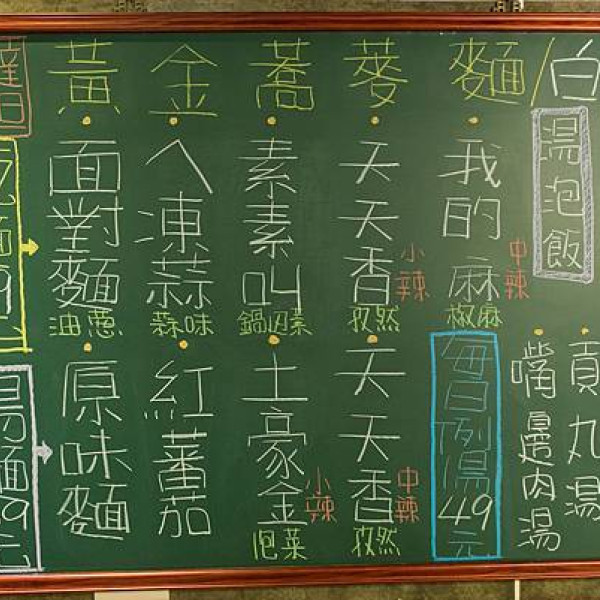 黃金蕎麥麵/白
面對麵
油蔥
ㄟ凍蒜
蒜味
素素叫
天天香
小辣
孜然
我的麻
中辣
椒麻
湯泡飯
原味麵
紅蕃茄
土豪金
小辣
泡菜
天天香
中辣
孜然
每日例湯49元
嘴邊肉湯
貢丸湯